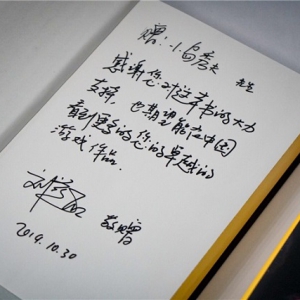 赠:小岛秀夫 先生
感谢您对这本书的大力
支持,也期望能在中国
看到更多的您的卓越的
游戏作品.
2019.10.30